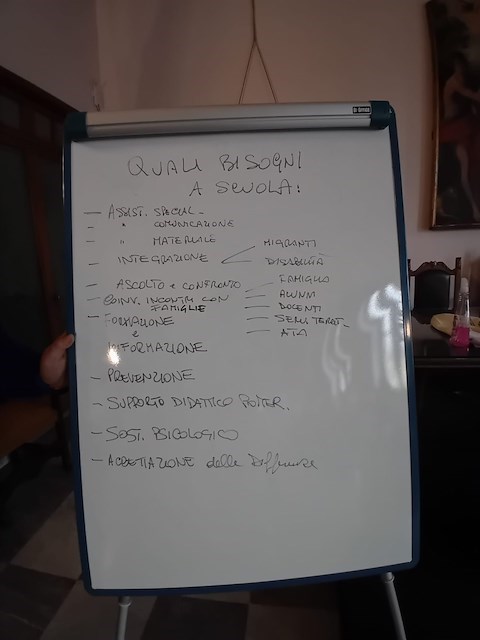 QUALI BISOGNI
A SCUOLA:
— ASSIST. SPECIAL.
— " COMUNICAZIONE
— " MATERIALE
— INTEGRAZIONE
MIGRANTI
DISABILITÀ
— ASCOLTO e CONFRONTO
— COINV. INCONTRI CON
FAMIGLIE
— FAMIGLIE
— ALUNNI
— DOCENTI
— ATA
— FORMAZIONE
e
INFORMAZIONE
— PREVENZIONE
— SUPPORTO DIDATTICO
— SOST. PSICOLOGICO
— delle Differenze